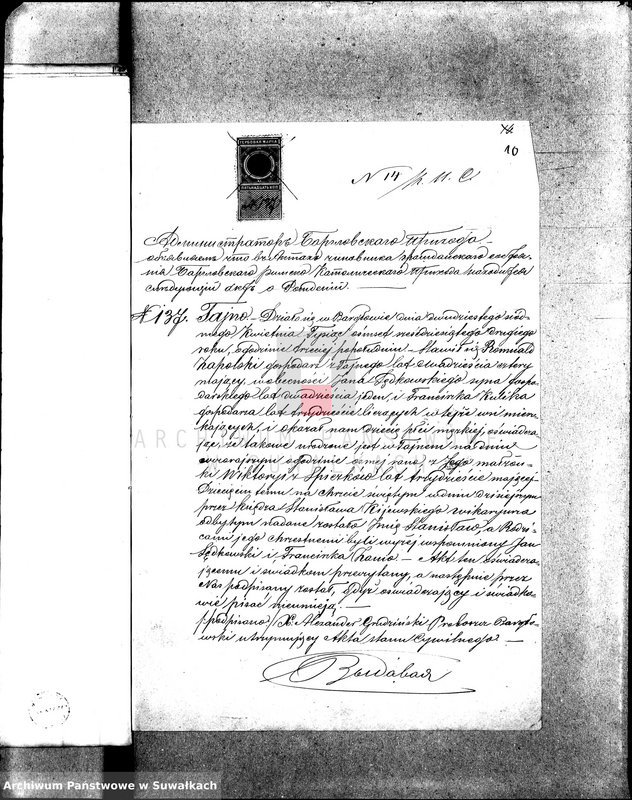 10
ГЕРБОВАЯ МАРКА
N 14 / К. И. С.
Администраторъ Баргловскаго Прихода
объявляетъ что въ Актахъ чиновника гражданскаго состоя-
нія Баргловскаго римско Католическаго Прихода находится
слѣдующій актъ о Рожденіи
N 137. Tajno – Działo się w Bargłowie dnia dwudziestego siód-
mego Kwietnia Tysiąc ośmset sześćdziesiątego drugiego
roku, o godzinie trzeciej popołudniu – Stawił się Romuald
Zapolski gospodarz z Tajna lat dwadzieścia cztery
mający, w obecności Jana Sędkowskiego syna Gospo-
darskiego lat dwadzieścia jeden, i Franciszka Kulika
gospodarza lat trzydzieście liczących w tejże wsi miesz-
kających, i okazał nam dziecię płci męzkiej, oświadcza-
jąc, że takowe urodzone jest w Tajnem na dniu
wczorajszym o godzinie ósmej rano, z Jego małżon-
ki Wiktoryi z Spierzków lat trzydzieście mającej
Dziecięciu temu na chrzcie świętym w dniu dzisiejszym
przez księdza Stanisława Kijewskiego wikaryusza
odbytym nadane zostało Imię Stanisław, a Rodzi-
cami jego chrzestnemi byli wyżej wspomniony Jan
Sędkowski i Franciszka – Akt ten oświadcza-
jącemu i świadkom przeczytany, a następnie przez
Nas podpisany został, Gdyż oświadczający i świadko-
wie pisać nieumieją. –
/podpisano/ X. Alexander Grudziński Proboszcz Bargło-
wski utrzymujący Akta stanu Cywilnego –
Archiwum Państwowe w Suwałkach